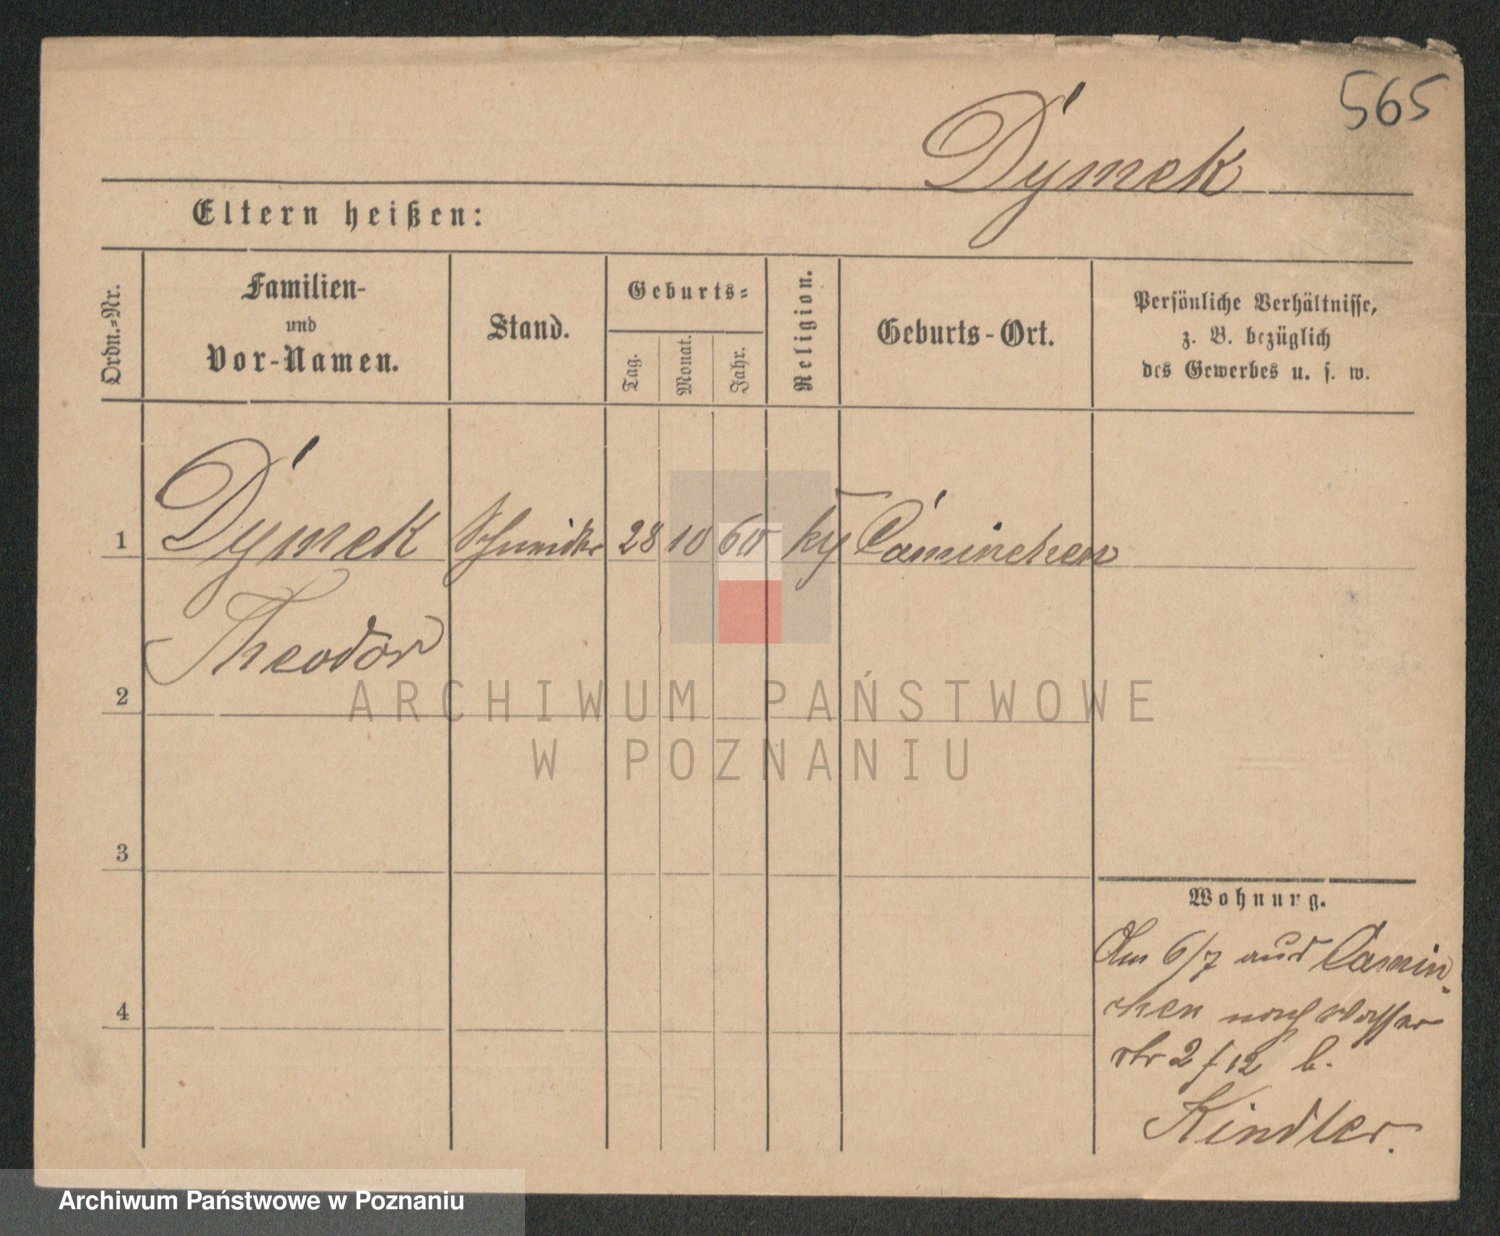 565
Dymek
Eltern heißen:
Ordn.-Nr.
Familien-
und
Vor-Namen.
Stand.
Geburts-
Tag.
Monat.
Jahr.
Religion.
Geburts-Ort.
Persönliche Verhältnisse,
z. B. bezüglich
des Gewerbes u. s. w.
1
Dymek Schneider 28 10 60 Caminchen
Theodor
2
ARCHIWUM PAŃSTWOWE
W POZNANIU
3
Wohnung.
Am 6/7 aus Camin-
chen nach Wasser
str 2 / 12 b.
Kindler.
4
Archiwum Państwowe w Poznaniu